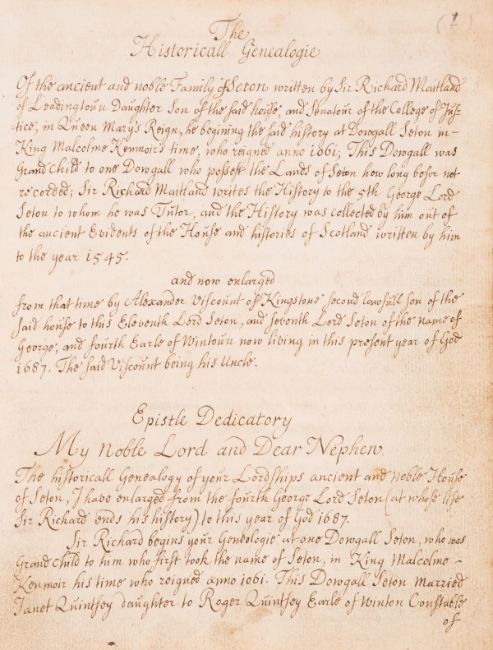 (1)
The
Historicall Genealogie
Of the ancient and noble Family of Seton written by Sir Richard Maitland
of Leadingtoun Daughter Son of the said house, and Senatour of the College of Jus-
tice, in Queen Marys Reign, he begining the said history at Dowgall Seton in-
King Malcolme Kenmoirs time, who reigned anno 1061; This Dowgall was
Grand Child to one Dowgall who possest the Lands of Seton how long befor not
recorded; Sir Richard Maitland writes the History to the 5th George Lord
Seton to whom he was Tutor, and the History was collected by him out of
the ancient Evidents of the House and histories of Scotland written by him
to the year 1545.
and now enlarged
from that time by Alexander Viscount of Kingstone second lawfull son of the
said house to this Eleventh Lord Seton, and seventh Lord Seton of the name of
George, and fourth Earle of Wintoun now living in this present year of God
1687. The said Viscount being his Uncle.
Epistle Dedicatory
My Noble Lord and Dear Nephew.
The historicall Genealogy of your Lordships ancient and Noble House
of Seton, I have enlarged from the fourth George Lord Seton (at whose life
Sir Richard ends his history) to this year of God 1687.
Sir Richard begins your Genelogie at one Dowgall Seton, who was
Grand Child to him who first took the name of Seton, in King Malcolme-
Kenmoir his time who reigned anno 1061. This Dowgall Seton Married
Janet Quintsey daughter to Roger Quintsey Earle of Winton Constable
of